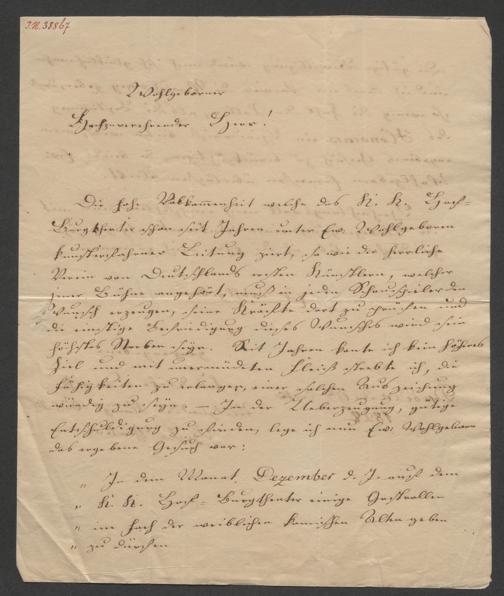 I.N. 38867
Wohlgeborner
Hochzuverehrender Herr!
Die hohe Vollkommenheit welche das K. K. Hof-
Burgtheater schon seit Jahren unter Ew. Wohlgeboren
kunsterfahrner Leitung ziert, so wie der herrliche
Verein von Deutschlands ersten Künstlern, welcher
jener Bühne angehört, muß in jedem Schauspieler den
Wunsch erzeugen, seine Kräfte dort zu prüfen und
die einstige Befriedigung dieses Wunsches wird sein
höchstes Streben seyn. Seit Jahren kante ich kein höheres
Ziel und mit unermüdetem Fleiß strebte ich, die
Fähigkeiten zu erlangen, einer solchen Auszeichnung
würdig zu seyn. — In der Ueberzeugung, gütige
Entschuldigung zu finden, lege ich nun Ew. Wohlgeborn
das ergebene Gesuch vor:
„ In dem Monat Dezember d. J. auf dem
„ K. K. Hof-Burgtheater einige Gastrollen
„ im Fach der weiblichen komischen Alten geben
„ zu dürfen